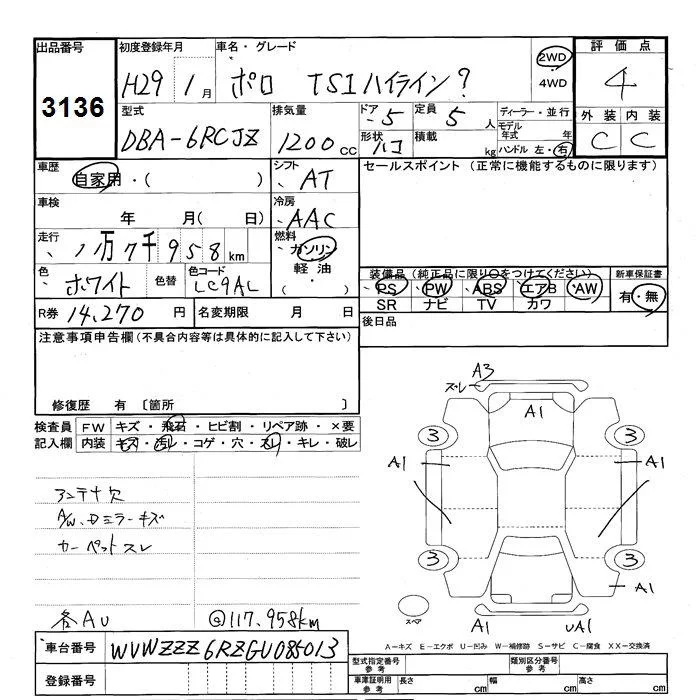 出品番号 3136
初度登録年月 H29 1月
車名・グレード ポロ TSIハイライン?
2WD ・ 4WD
評価点 4
外装 内装
C C
型式 DBA-6RCJZ
排気量 1200cc
ドア 5
形状 ハコ
定員 5人
積載 kg
ディーラー・並行
モデル年式 年
ハンドル 左・右
車歴 自家用・( )
シフト AT
セールスポイント (正常に機能するものに限ります)
車検 年 月( 日)
冷房 AAC
走行 11万7千958km
燃料 ガソリン 軽油 ( ・ )
色 ホワイト 色替 色コード LC9AL
装備品(純正品に限り○をつけてください)
PS PW ABS エアB AW
SR ナビ TV カワ
新車保証書
有・無
R券 14,270円
名変期限 月 日
後日品
注意事項申告欄(不具合内容等は具体的に記入して下さい)
修復歴 有 〔箇所 〕
検査員記入欄
FW キズ・飛石・ヒビ割・リペア跡・×要
内装 キズ・汚レ・コゲ・穴・スレ・キレ・破レ
アンテナ欠
A/W、Dミラーキズ
カーペットスレ
各AU
117.958km
A3
ズレ
A1
3 3
A1 A1
3 3
A1
スペア
A1 UA1
A-キズ E-エクボ U-凹み W-補修跡 S-サビ C-腐食 XX-交換済
車台番号 WVWZZZ6RZGU085013
登録番号
型式指定番号 参考
類別区分番号 参考
車庫証明用 参考 長さ cm 幅 cm 高さ cm